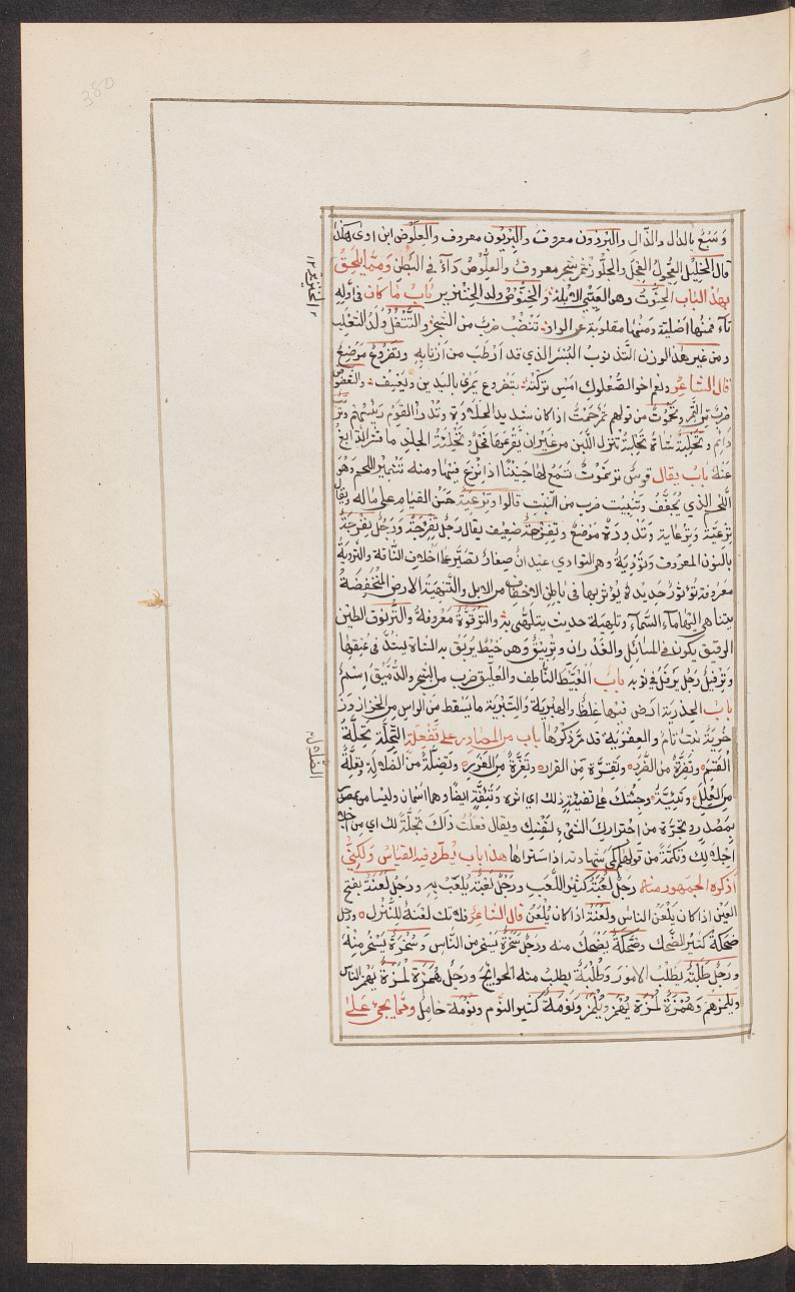 380
وسبع بالدال والذال والبرذون معروف والبزيون معروف والعلوض ابن اوى هكذا
قال الخليل العجول العجل والجلوز ثمر شجر معروف والعلوص داء في البطن ومما يلحق
بهذا الباب الخنوت وهو العيي الابله والخنوص ولد الخنزير باب ما كان في اوله
تاء فمنها اصلية ومنها مقلوبة عن الواو تنضب ضرب من الشجر والتتفل ولد الثعلب
ومن غير هذا الوزن التذنوب البسر الذي قد ارطب من اذنابه وتضروع موضع
قال الشاعر ونعم اخو الصعلوك امس تركته بتضروع يمري باليدين ويعسف والتعضوض
ضرب من التمر وتحموت من قولهم تمر حمت اذا كان شديد الحلاوة وتدرأ القوم رئيسهم
دائم وتحلبة شاة تحلبة تنزل اللبن من غير ان يقرعها فحل وتحلئة الجلد ما قشر الدابغ
عنه باب يقال قوس ترنموت تسمع لها حنينا اذا نزع فيها ومنه تتمير اللحم وهو
اللحم الذي يجفف وتنبيت ضرب من النبت قالوا وترعية حسن القيام على ماله ويقال
ترعية وترعاية وتدورة موضع وتفرجة ضعيف يقال رجل نفرجة ورجل تفرجة
بالنون المعروف وتودية وهو التوادي عيدان صغار تصير على اخلاف الناقة والتودية
معروفة تؤثور حديدة يؤثر بها في باطن الاخفاف من الابل والتنهية الارض المنخفضة
يتناهى اليها ماء السماء وتلهية حديث يتلهى به والترقوة معروفة والترنوق الطين
الرقيق يكون في المسائل والغدران وتربيق وهو خيط يربق به الشاة يشد في عنقها
وترفيل رجل يرفل في ثوبه باب القبيط الناطف والعليق ضرب من الشجر والدميق اسم
باب الحذرية ارض فيها غلظ والهبرية والتبرية ما يسقط من الراس من الحزاز وز
خرية نبت تام والعفرية قد مر ذكرها باب من المصادر على تفعلة التحلة تحلة
القسم وتفرة من الفر وتقرة من القرار وتغرة من الغرر وتضلة من الضلالة وتعلة
من العلل وتئية وجئتك على تفيئة ذلك اي اثره وتئفة ايضا وهما اسمان وليسا من
بمصدر وتجرة من اجترارك الشئ لنفسك ويقال فعلت ذاك تجلة لك اي من اجل
اجلالك وتكمة من قولهم كمى شهادته اذا سترها هذا باب يطرد فيه القياس ولكني
اذكره الجمهور منه رجل لعبة كثير اللعب ورجل لعبة يلعب به ورجل لعنة بفتح
العين اذا كان يلعن الناس ولعنة اذا كان يلعن قال الشاعر فلا تك لعنة للنزل ورجل
ضحكة كثير الضحك وضحكة يضحك منه ورجل سخرة يسخر من الناس وسخرة يسخر منه
ورجل طلبة يطلب الامور وطلبة يطلب منه الحوائج ورجل همزة لمزة يهمز الناس
ويلمزهم وهمزة لمزة يهمز ويلمز ونومة كثير النوم ونومة خامل ومما يجئ على
الخنازير ١٢
الضلال